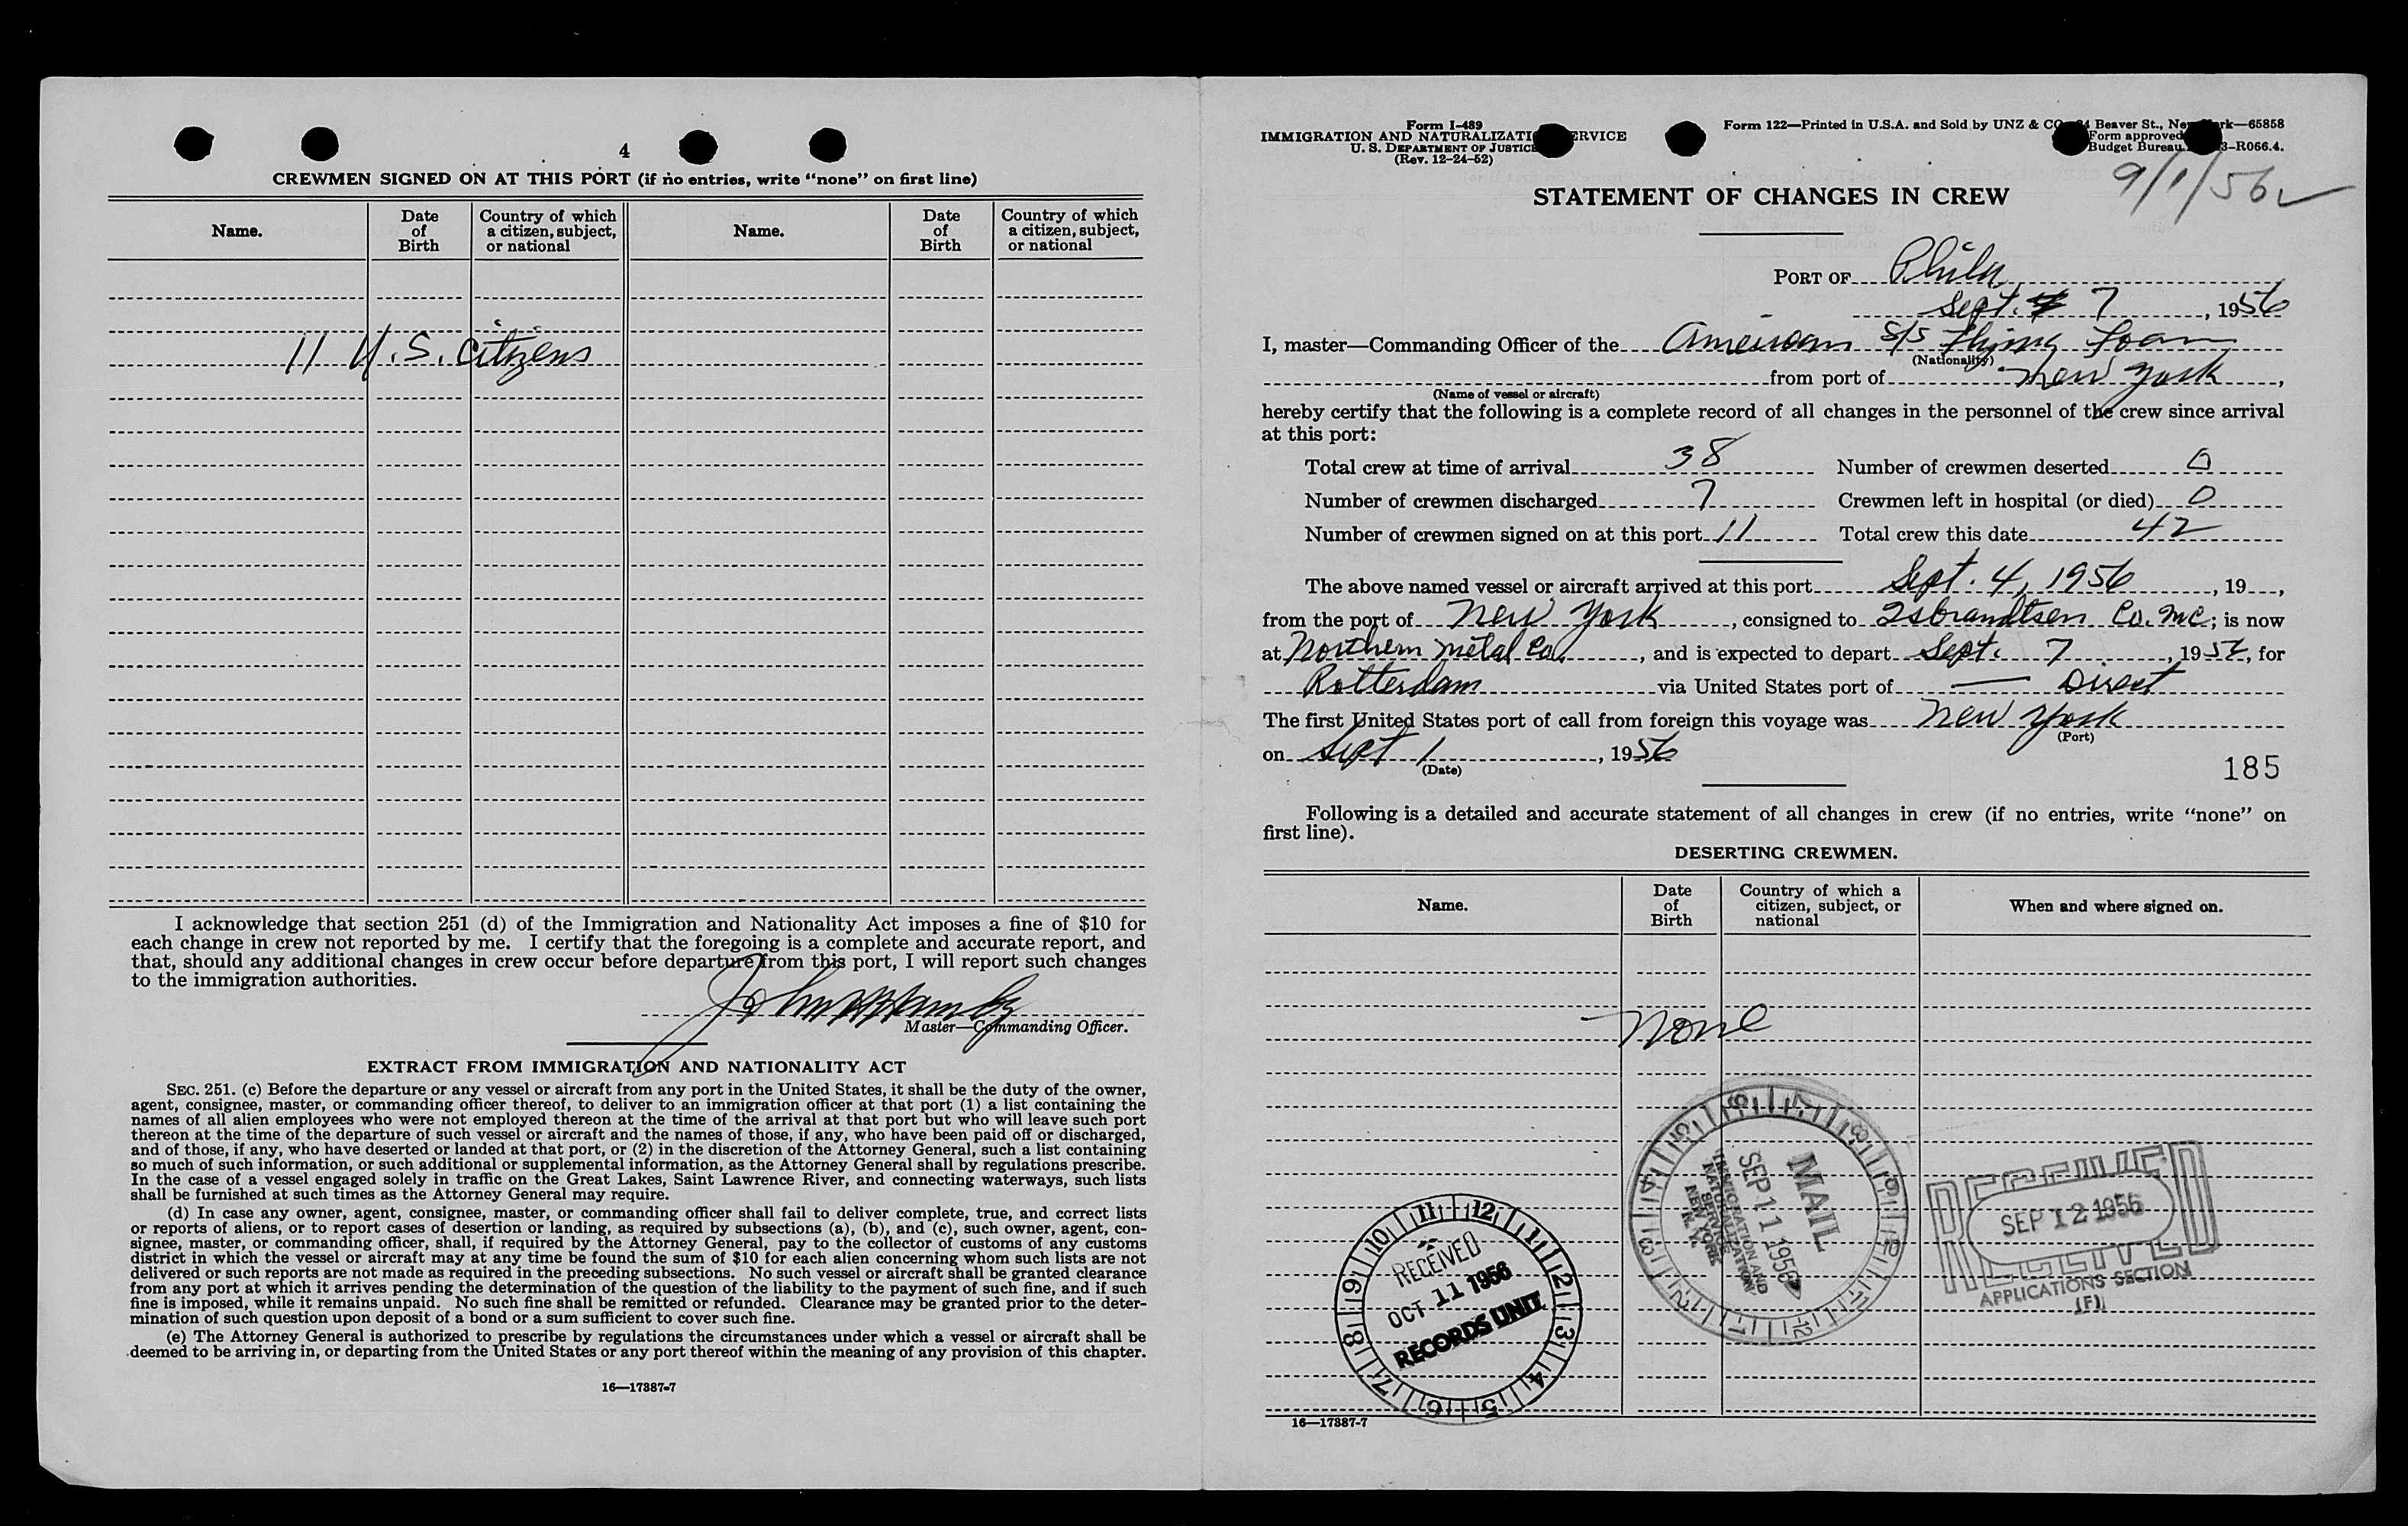 4
CREWMEN SIGNED ON AT THIS PORT (if no entries, write "none" on first line)
Name. Date of Birth Country of which a citizen, subject, or national Name. Date of Birth Country of which a citizen, subject, or national
11 U.S. citizens
I acknowledge that section 251 (d) of the Immigration and Nationality Act imposes a fine of $10 for
each change in crew not reported by me. I certify that the foregoing is a complete and accurate report, and
that, should any additional changes in crew occur before departure from this port, I will report such changes
to the immigration authorities.
Master—Commanding Officer.
EXTRACT FROM IMMIGRATION AND NATIONALITY ACT
SEC. 251. (c) Before the departure or any vessel or aircraft from any port in the United States, it shall be the duty of the owner,
agent, consignee, master, or commanding officer thereof, to deliver to an immigration officer at that port (1) a list containing the
names of all alien employees who were not employed thereon at the time of the arrival at that port but who will leave such port
thereon at the time of the departure of such vessel or aircraft and the names of those, if any, who have been paid off or discharged,
and of those, if any, who have deserted or landed at that port, or (2) in the discretion of the Attorney General, such a list containing
so much of such information, or such additional or supplemental information, as the Attorney General shall by regulations prescribe.
In the case of a vessel engaged solely in traffic on the Great Lakes, Saint Lawrence River, and connecting waterways, such lists
shall be furnished at such times as the Attorney General may require.
(d) In case any owner, agent, consignee, master, or commanding officer shall fail to deliver complete, true, and correct lists
or reports of aliens, or to report cases of desertion or landing, as required by subsections (a), (b), and (c), such owner, agent, con-
signee, master, or commanding officer, shall, if required by the Attorney General, pay to the collector of customs of any customs
district in which the vessel or aircraft may at any time be found the sum of $10 for each alien concerning whom such lists are not
delivered or such reports are not made as required in the preceding subsections. No such vessel or aircraft shall be granted clearance
from any port at which it arrives pending the determination of the question of the liability to the payment of such fine, and if such
fine is imposed, while it remains unpaid. No such fine shall be remitted or refunded. Clearance may be granted prior to the deter-
mination of such question upon deposit of a bond or a sum sufficient to cover such fine.
(e) The Attorney General is authorized to prescribe by regulations the circumstances under which a vessel or aircraft shall be
deemed to be arriving in, or departing from the United States or any port thereof within the meaning of any provision of this chapter.
16—17887-7
Form I-489
IMMIGRATION AND NATURALIZATI ERVICE
U. S. DEPARTMENT OF JUSTICE
(Rev. 12-24-52)
Form 122—Printed in U.S.A. and Sold by UNZ & CO Beaver St., Ne rk—65858
Form approved
Budget Bureau -R066.4.
9/1/56
STATEMENT OF CHANGES IN CREW
PORT OF Phila
Sept. 7, 1956
I, master—Commanding Officer of the American S/S Flying Foam
(Nationality)
from port of New York,
(Name of vessel or aircraft)
hereby certify that the following is a complete record of all changes in the personnel of the crew since arrival
at this port:
Total crew at time of arrival 38 Number of crewmen deserted 0
Number of crewmen discharged 7 Crewmen left in hospital (or died) 0
Number of crewmen signed on at this port 11 Total crew this date 42
The above named vessel or aircraft arrived at this port Sept. 4, 1956, 19 ,
from the port of New York, consigned to Isbrandtsen Co. Inc; is now
at Northern Metal Co., and is expected to depart Sept. 7, 1956, for
Rotterdam via United States port of — Direct
The first United States port of call from foreign this voyage was New York
(Port)
on Sept 1, 1956
(Date)
185
Following is a detailed and accurate statement of all changes in crew (if no entries, write "none" on
first line).
DESERTING CREWMEN.
Name. Date of Birth Country of which a citizen, subject, or national When and where signed on.
None
MAIL
SEP 11 1956
IMMIGRATION AND
NATURALIZATION
SERVICE
NEW YORK
N.Y.
RECEIVED
SEP 12 1956
APPLICATIONS SECTION
(F)
RECEIVED
OCT 11 1956
RECORDS UNIT
16—17887-7